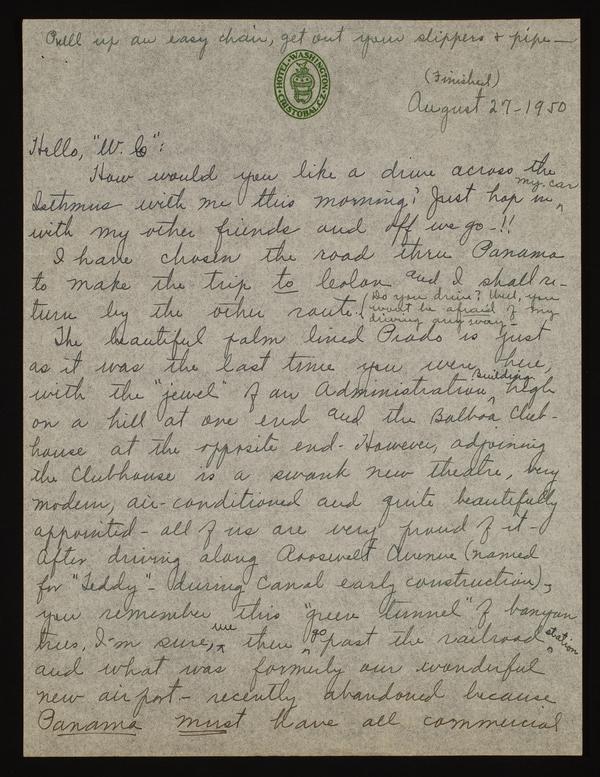 Pull up an easy chair, get out your slippers & pipe—
HOTEL·WASHINGTON·
CRISTOBAL·C.Z.
(Finished)
August 27-1950
Hello, "W. C.":
How would you like a drive across the
Isthmus with me this morning? Just hop in my car
with my other friends and off we go-!!
I have chosen the road thru Panama
to make the trip to Colon and I shall re-
turn by the other route. (Do you drive? Well, you
won't be afraid of my
driving anyway-
The beautiful palm lined Prado is just
as it was the last time you were here,
with the "jewel" of an Administration Building high
on a hill at one end and the Balboa Club-
house at the opposite end - However, adjoining
the Clubhouse is a swank new theatre, very
modern, air-conditioned and quite beautifully
appointed - all of us are very proud of it -
After driving along Roosevelt Avenue (named
for "Teddy" - during Canal early construction),
you remember this "green tunnel" of banyan
trees, I'm sure, we then go past the railroad station
and what was formerly our wonderful
new airport - recently abandoned because
Panama must have all commercial